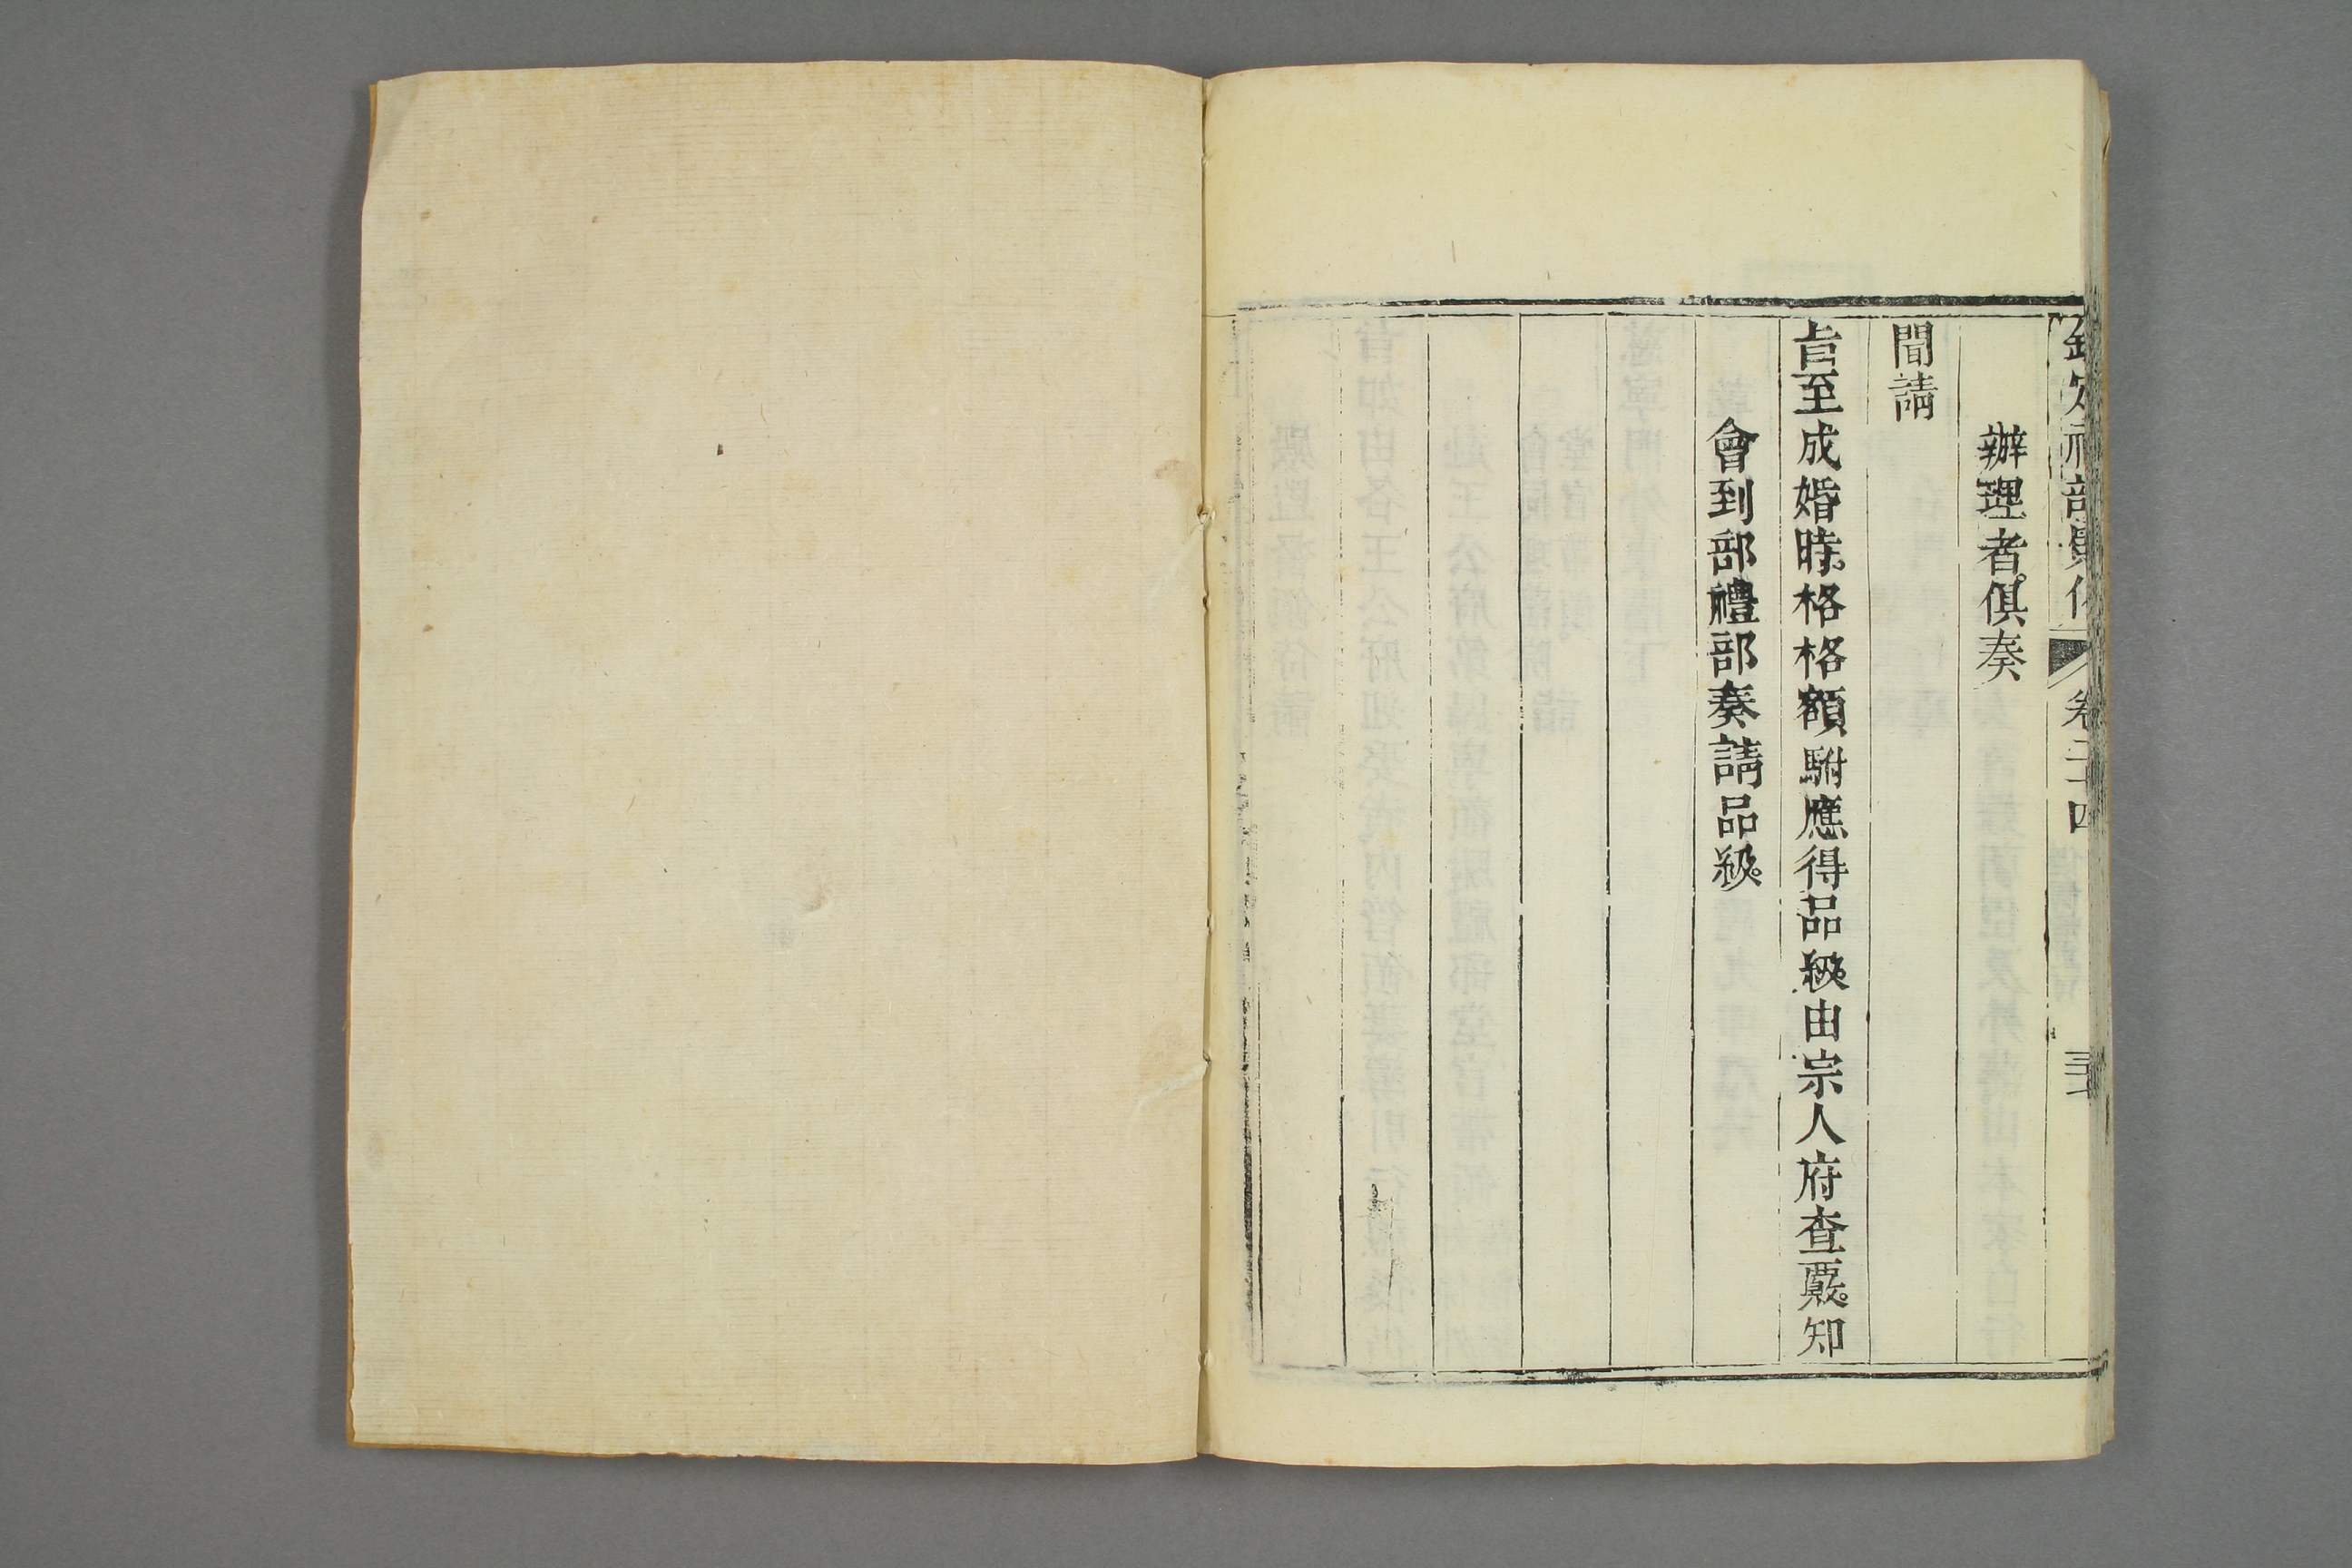 欽定禮部則例 卷二十四
辦理者。俱奏
聞請
旨至成婚時。格格額駙應得品級。由宗人府查覈。知
會到部。禮部奏請品級。